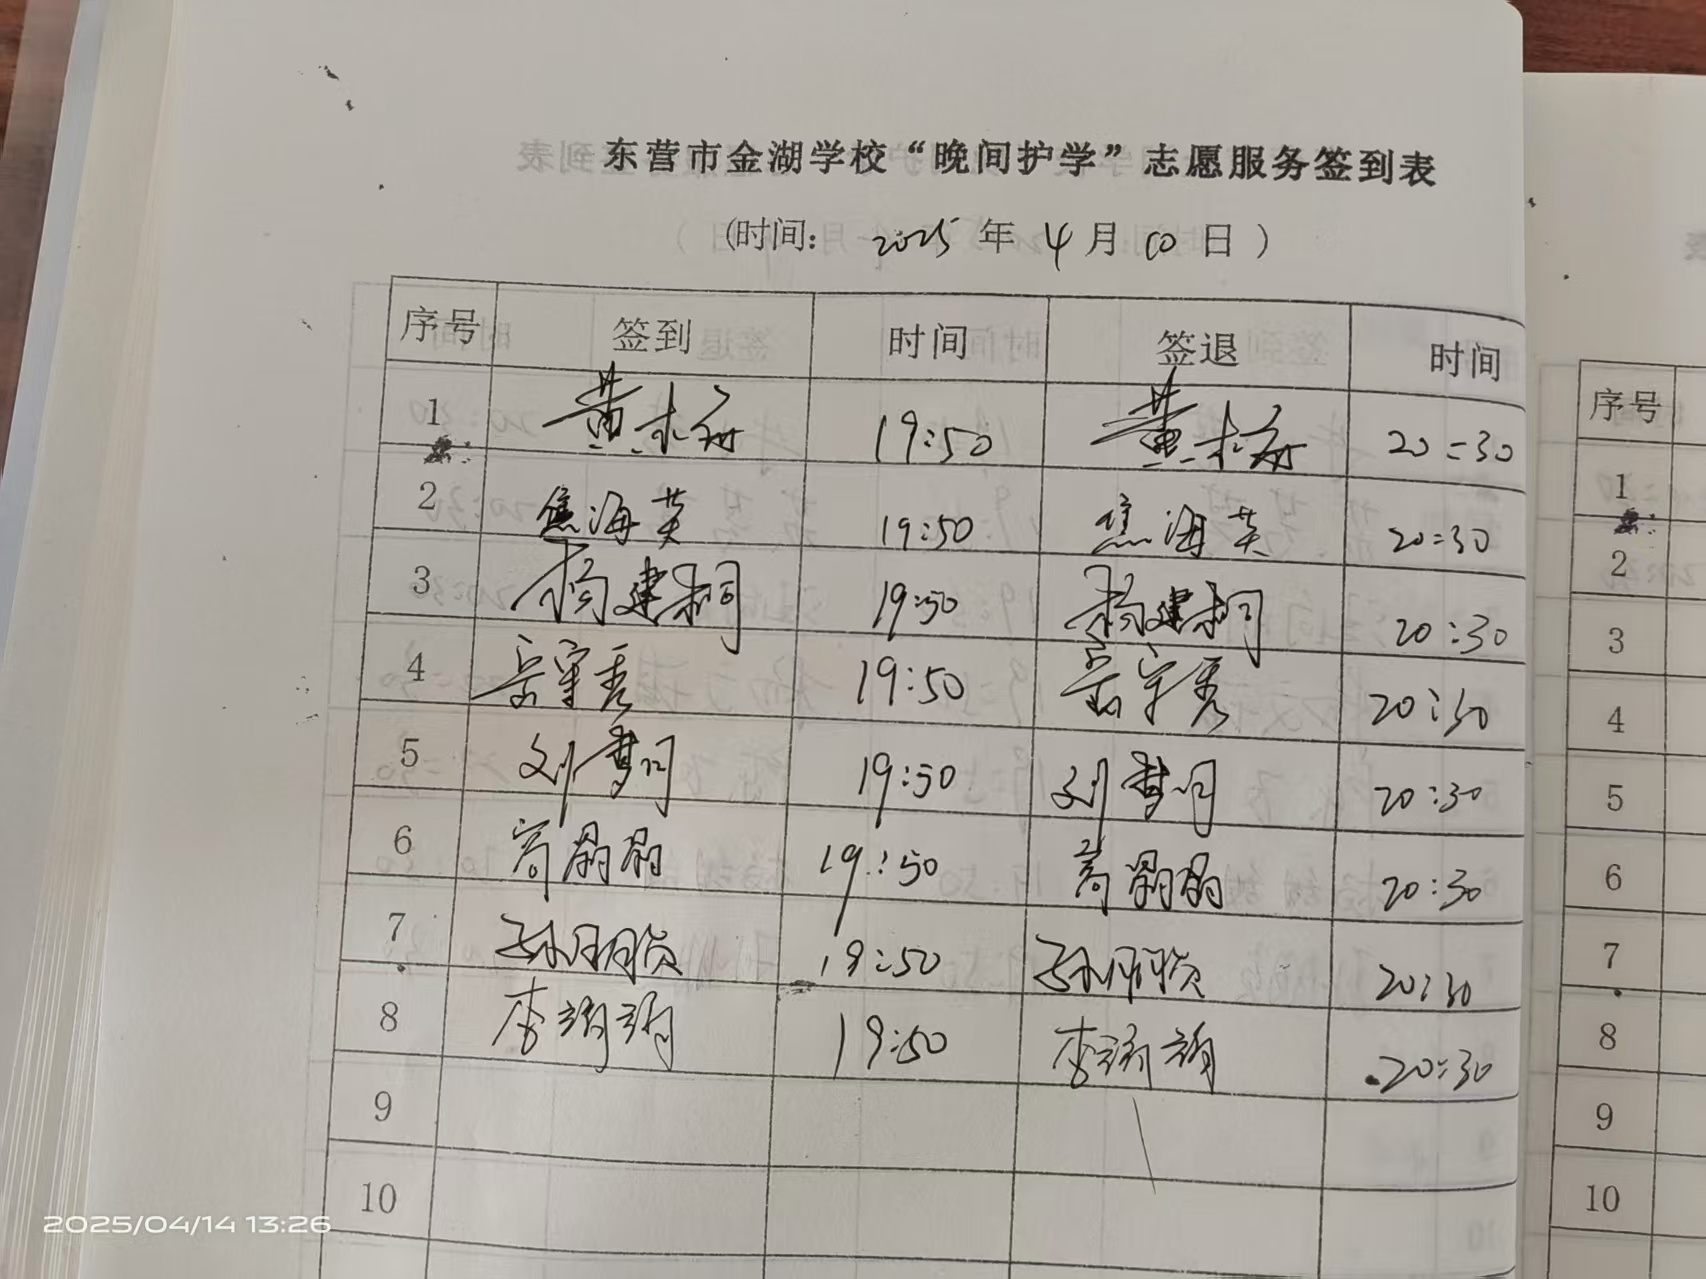 东营市金湖学校“晚间护学”志愿服务签到表
(时间: 2025 年 4 月 10 日 )
序号 签到 时间 签退 时间
1 黄 19:50 黄 20:30
2 焦海英 19:50 焦海英 20:30
3 杨建桐 19:50 杨建桐 20:30
4 岳守秀 19:50 岳守秀 20:30
5 刘梦月 19:50 刘梦月 20:30
6 高晶晶 19:50 高晶晶 20:30
7 孙 19:50 孙 20:30
8 李 19:50 李 20:30
9
10
序号
1
2
3
4
5
6
7
8
9
10
2025/04/14 13:26